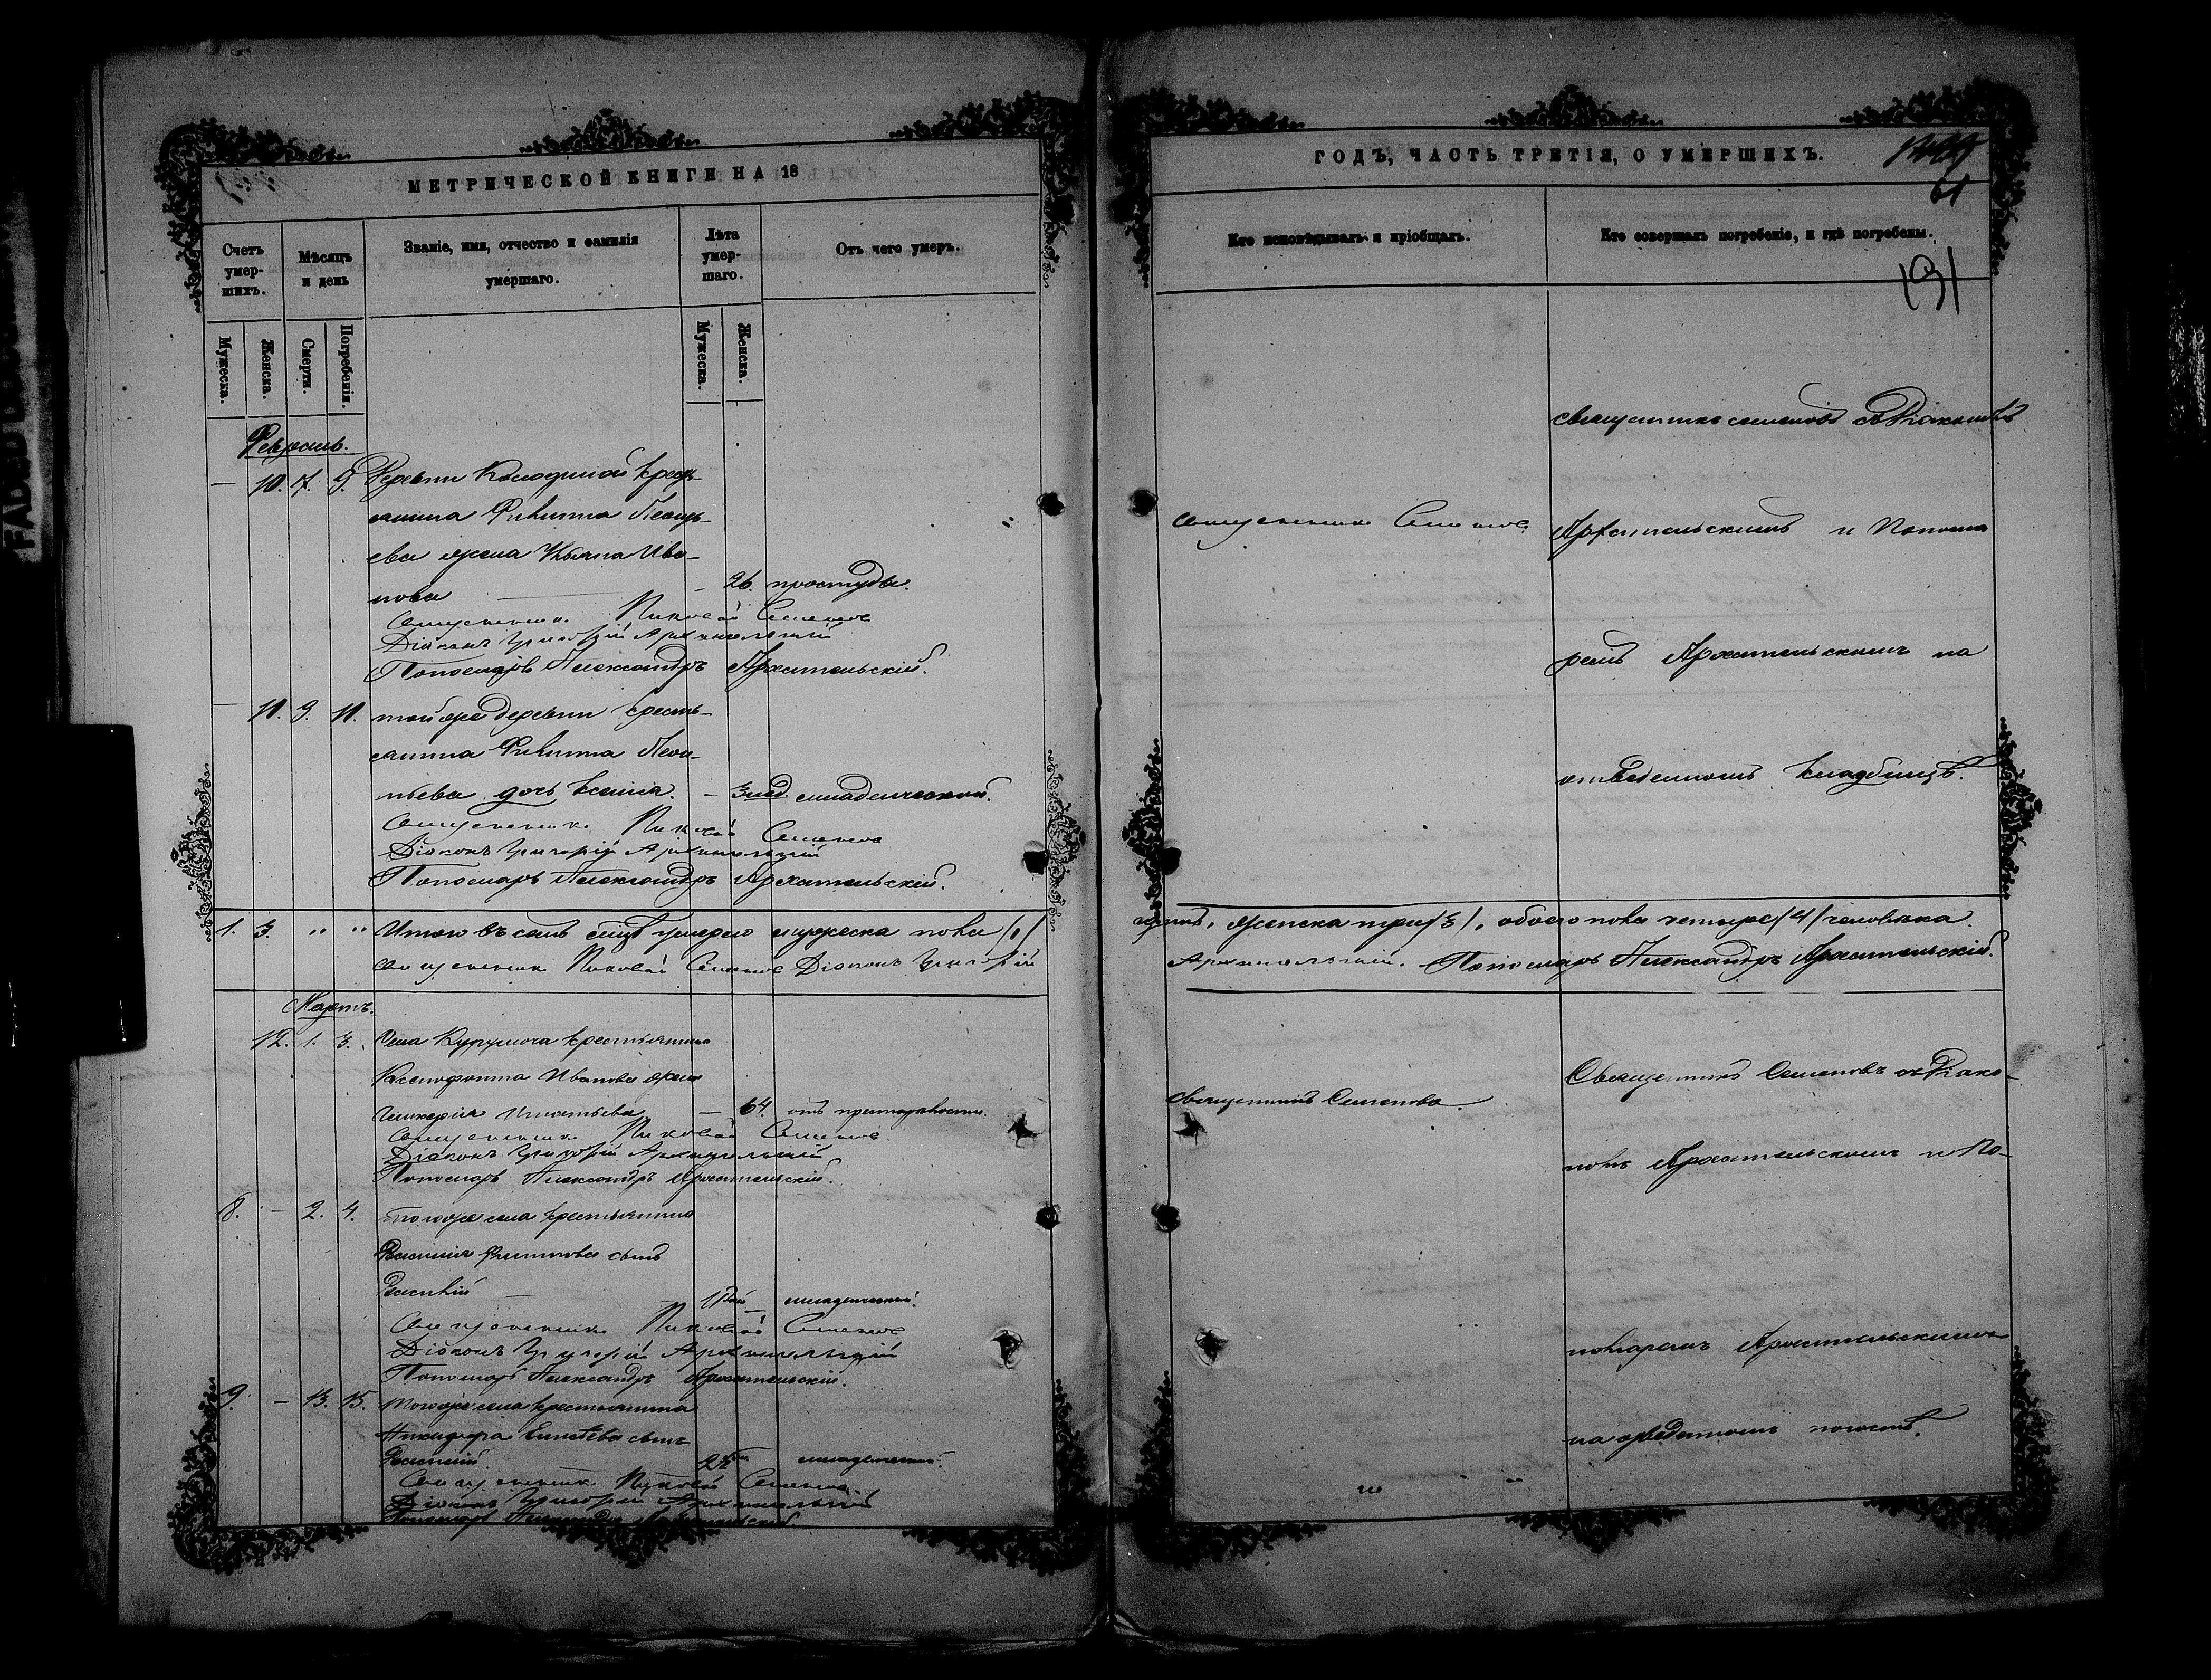 МЕТРИЧЕСКОЙ КНИГИ НА 18
Счетъ умер-шихъ.
Мѣсяцъ и день
Званіе, имя, отчество и фамилія умершаго.
Лѣта умер-шаго.
Отъ чего умеръ.
Мужеска.
Женска.
Смерти.
Погребенія.
Мужеска.
Женска.
Февраль.
— 10. 7. 9. Деревни крес-
тьянина Филиппа Леонть-
ева жена Ива-
нова — 26. простуды.
Священникъ Николай Семеновъ
Діаконъ Григорій Архангельскій
Пономарь Александръ Архангельскій.
— 11. 9. 11. той же деревни кресть-
янина Филиппа Леон-
тьева дочь Ксенія. — 3 нед. младенческой.
Священникъ Николай Семеновъ
Діаконъ Григорій Архангельскій
Пономарь Александръ Архангельскій.
1. 3. " " Итого въ семъ мцѣ умерло мужеска пола /1/
Священникъ Николай Семеновъ Діаконъ Григорій
Мартъ.
12. 1. 3. Села Курумоча крестьянина
Ксенофонта Иванова жена
Гликерія Игнатьева — 64. отъ престарѣлости.
Священникъ Николай Семеновъ
Діаконъ Григорій Архангельскій
Пономарь Александръ Архангельскій.
8. — 2. 4. Того же села крестьянина
Василія Филиппова сынъ
Василій — младенческой.
Священникъ Николай Семеновъ
Діаконъ Григорій Архангельскій
Пономарь Александръ Архангельскій.
9. — 13. 15. Того же села крестьянина
Никифора сынъ
Василій младенческой.
Священникъ Николай Семеновъ
Діаконъ Григорій Архангельскій
Пономарь Александръ Архангельскій.
ГОДЪ, ЧАСТЬ ТРЕТІЯ, О УМЕРШИХЪ.
61
Кто исповѣдывалъ и пріобщалъ.
Кто совершалъ погребеніе, и гдѣ погребены.
191
Священникъ Семеновъ съ Діакономъ
Священникъ Семеновъ.
Архангельскимъ и Понома-
ремъ Архангельскимъ на
отведенномъ кладбищѣ.
одинъ, женска три /3/, обоего пола четыре /4/ человѣка.
Архангельскій. Пономарь Александръ Архангельскій.
Священникъ Семеновъ съ Діако-
Священникъ Семеновъ.
номъ Архангельскимъ и По-
номаремъ Архангельскимъ
на отведенномъ погостѣ.